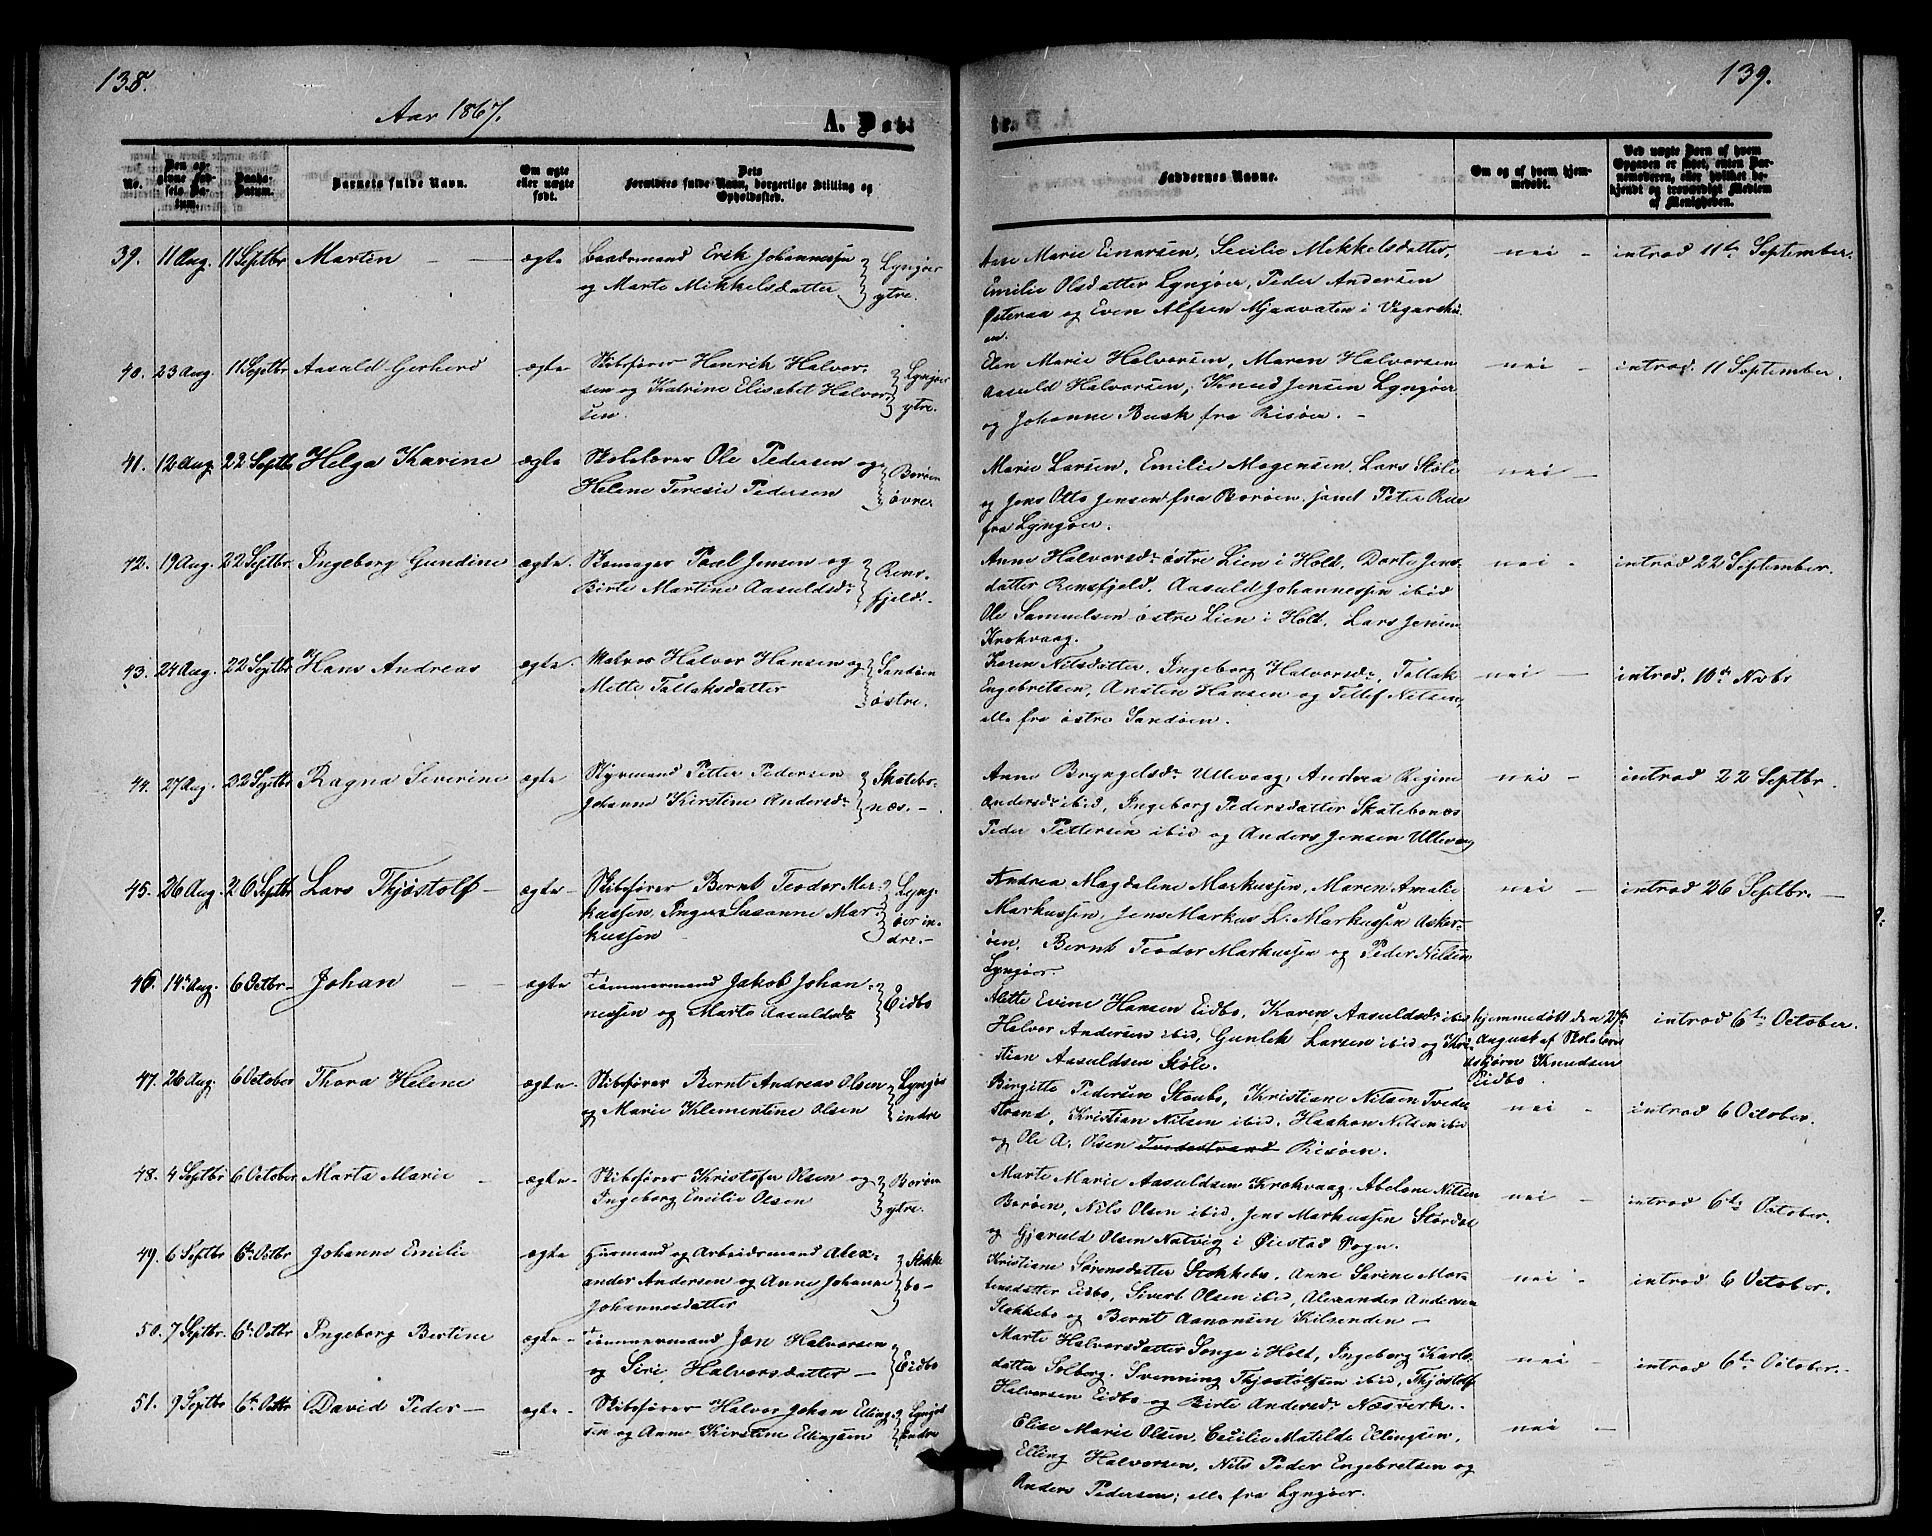 138.
Aar 1867.
A. Døb:
No.
Den op-
givne Fød-
sels Da-
tum.
Daabs-
Datum.
Barnets fulde Navn.
Om ægte
eller uægte
født.
Dets
Forældres fulde Navn, borgerlige Stilling og
Opholdssted.
39. 11 Aug. 11 Septbr Martin ægte Baadsmand Erik Johannessen
og Marte Mikkelsdatter
Lyngøer
ytre.
40. 23 Aug. 11 Septbr Aasuld Gerherd ægte Skibsfører Henrik Halvor-
sen og Katrine Elisabet Halvor-
sen.
Lyngøer
ytre.
41. 12 Aug. 22 Septbr Helga Karine ægte Skolelærer Ole Pedersen og
Helene Teresie Pedersen
Borøen
övre.
42. 19 Aug. 22 Septbr. Ingeborg Gundine ægte. Skomager Poul Jensen og
Birte Martine Aasuldsdr
Rens-
fjeld.
43. 24 Aug. 22 Septbr Hans Andreas ægte. Matros Halvor Hansen og
Mette Tallaksdatter
Sandøen
östre.
44. 27 Aug. 22 Septbr Ragna Severine ægte Styrmand Petter Pedersen
Johanne Kirstine Andersdr
Skatebo-
næs.
45. 26 Aug. 26 Septbr Lars Thjøstolf ægte Skibsfører Bernt Teodor Mar-
kussen, Inger Susanne Mar-
kussen
Lyng-
öer in-
dre.
46. 14de Aug. 6 Octbr Johan ægte Tömmermand Jakob Johan-
nessen og Marte Aasuldsdr
Eidbo
47. 26 Aug. 6 October Thora Helene ægte Skibsfører Bernt Andreas Olsen
og Marie Klementine Olsen
Lyngør
indre
48. 4 Septbr 6 October Marta Marie ægte Skibsfører Kristofer Olsen og
Ingeborg Emilie Olsen
Borøen
ytre.
49. 6 Septbr 6te Octbr Johanne Emilie ægte Huusmand og Arbeidsmand Alex-
ander Andersen og Anne Johanne
Johannesdatter
Stokke
bo
50. 7 Septbr. 6te Octbr Ingeborg Bertine ægte Tömmermand Jon Halvorsen
og Siri Halvorsdatter
Eidbo
51. 9 Septbr 6te Octbr David Peder ægte Skibsfører Halvor Johan Elling-
sen og Anne Kirstine Ellingsen
Lyngør
indre
139.
te
Faddernes Navne.
Om og af hvem hjem-
medøbt.
Ved uægte Børn af hvem
Opgaven er sket, enten Bar-
nemoderen, eller hvilket be-
kjendt og troværdigt Medlem
af Menigheden.
Ane Marie Einarsen, Secilie Mekkelsdatter,
Emilie Olsdatter Lyngøer, Peder Andersen
Österaa og Even Alfsen Mjaavaten i Vegarshei-
en.
nei
introd 11te September.
Elen Marie Halvorsen, Maren Halvorsen
Aasuld Halvorsen, Knud Jensen Lyngøer
og Johanne Busk fra Risøer.
nei
introd. 11 September.
Marie Larsen, Emilie Mogensen, Lars Støle
og Jens Otto Jensen fra Borøen, samt Peter
fra Lyngøer.
nei
Anne Halvorsdr östre Lien i Holt, Dorte Jens-
datter Rensfjeld, Aasuld Johannessen ibid
Ole Samuelsen östre Lien i Holt, Lars Jensen
Krokvaag.
nei
introd 22 September.
Karen Nilsdatter, Ingeborg Halvorsdr, Tallak
Engebretsen, Ansten Hansen og Tellef Nilsen,
alle fra östre Sandøen.
nei
introd. 10de Novbr
Anne Bryngelsdr Ullevaag, Andrea Regine
Andersdr ibid, Ingeborg Pedersdatter Skatebonæs
Peder Pettersen ibid og Anders Jensen Ullevaag
nei
introd 22 Septbr.
Andrea Magdalene Markussen, Maren Amalie
Markussen, Jens Markus L. Markussen Asker-
öen, Bernt Teodor Markussen og Peder Nilsen
Lyngøer.
nei
introd 26 Septbr.
Alette Evine Hansen Eidbo, Karen Aasuldsdr ibid
Halvor Andersen ibid, Gunlek Larsen ibid og Kri-
stian Aasuldsen Støle.
hjemmedöbt den
August af Skolelærer
Asbjørn Knudsen
Eidbo.
introd 6te October.
Birgitte Pedersen Staubo, Kristiane Nilsen Tvede
strand, Kristian Nilsen ibid, Haakon Nilsen ibid
og Ole A. Olsen Tvedestrand Risöen.
nei
introd 6 October.
Marte Marie Aasuldsen Krokvaag, Abelone Nilsen
Borøen, Nils Olsen ibid, Jens Markussen Størdal
og Gjeruld Olsen Natvig i Øiestad Sogn.
nei
introd 6te October.
Kristiane Sørensdatter Stokkebo, Anne Serine Mor-
tensdatter Eidbo, Sivert Olsen ibid, Alexander Andersen
Stokkebo og Bernt Aanonsen Kilsenden
nei
introd 6 October.
Marte Halvorsdatter Songe i Holt, Ingeborg Karls-
datter Solberg, Svenning Thjøstolfsen ibid, Thjøstolf
Halvorsen Eidbo og Birte Andersdr Næsverk.
nei
introd 6te October.
Elise Marie Olsen, Cecilie Matilde Ellingsen,
Elling Halvorsen, Nils Peder Engebretsen og
Anders Pedersen, alle fra Lyngøer.
nei